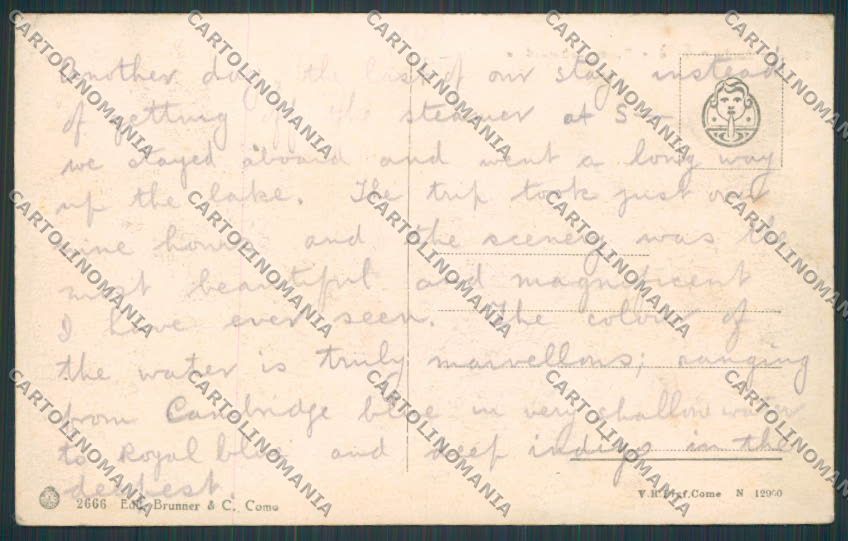 Another day, the last of our stay instead
of getting off the steamer at S -
we stayed aboard and went a long way
up the lake. The trip took just over
nine hours and the scenery was the
most beautiful and magnificent
I have ever seen. The colour of
the water is truly marvellous; ranging
from Cambridge blue in very shallow water
to Royal blue and deep indigo in the
deepest
2666 Edit. Brunner & C., Como
V.R.Pref.Como N 12900
CARTOLINOMANIA
CARTOLINOMANIA
CARTOLINOMANIA
CARTOLINOMANIA
CARTOLINOMANIA
CARTOLINOMANIA
CARTOLINOMANIA
CARTOLINOMANIA
CARTOLINOMANIA
CARTOLINOMANIA
CARTOLINOMANIA
CARTOLINOMANIA
CARTOLINOMANIA
CARTOLINOMANIA
CARTOLINOMANIA